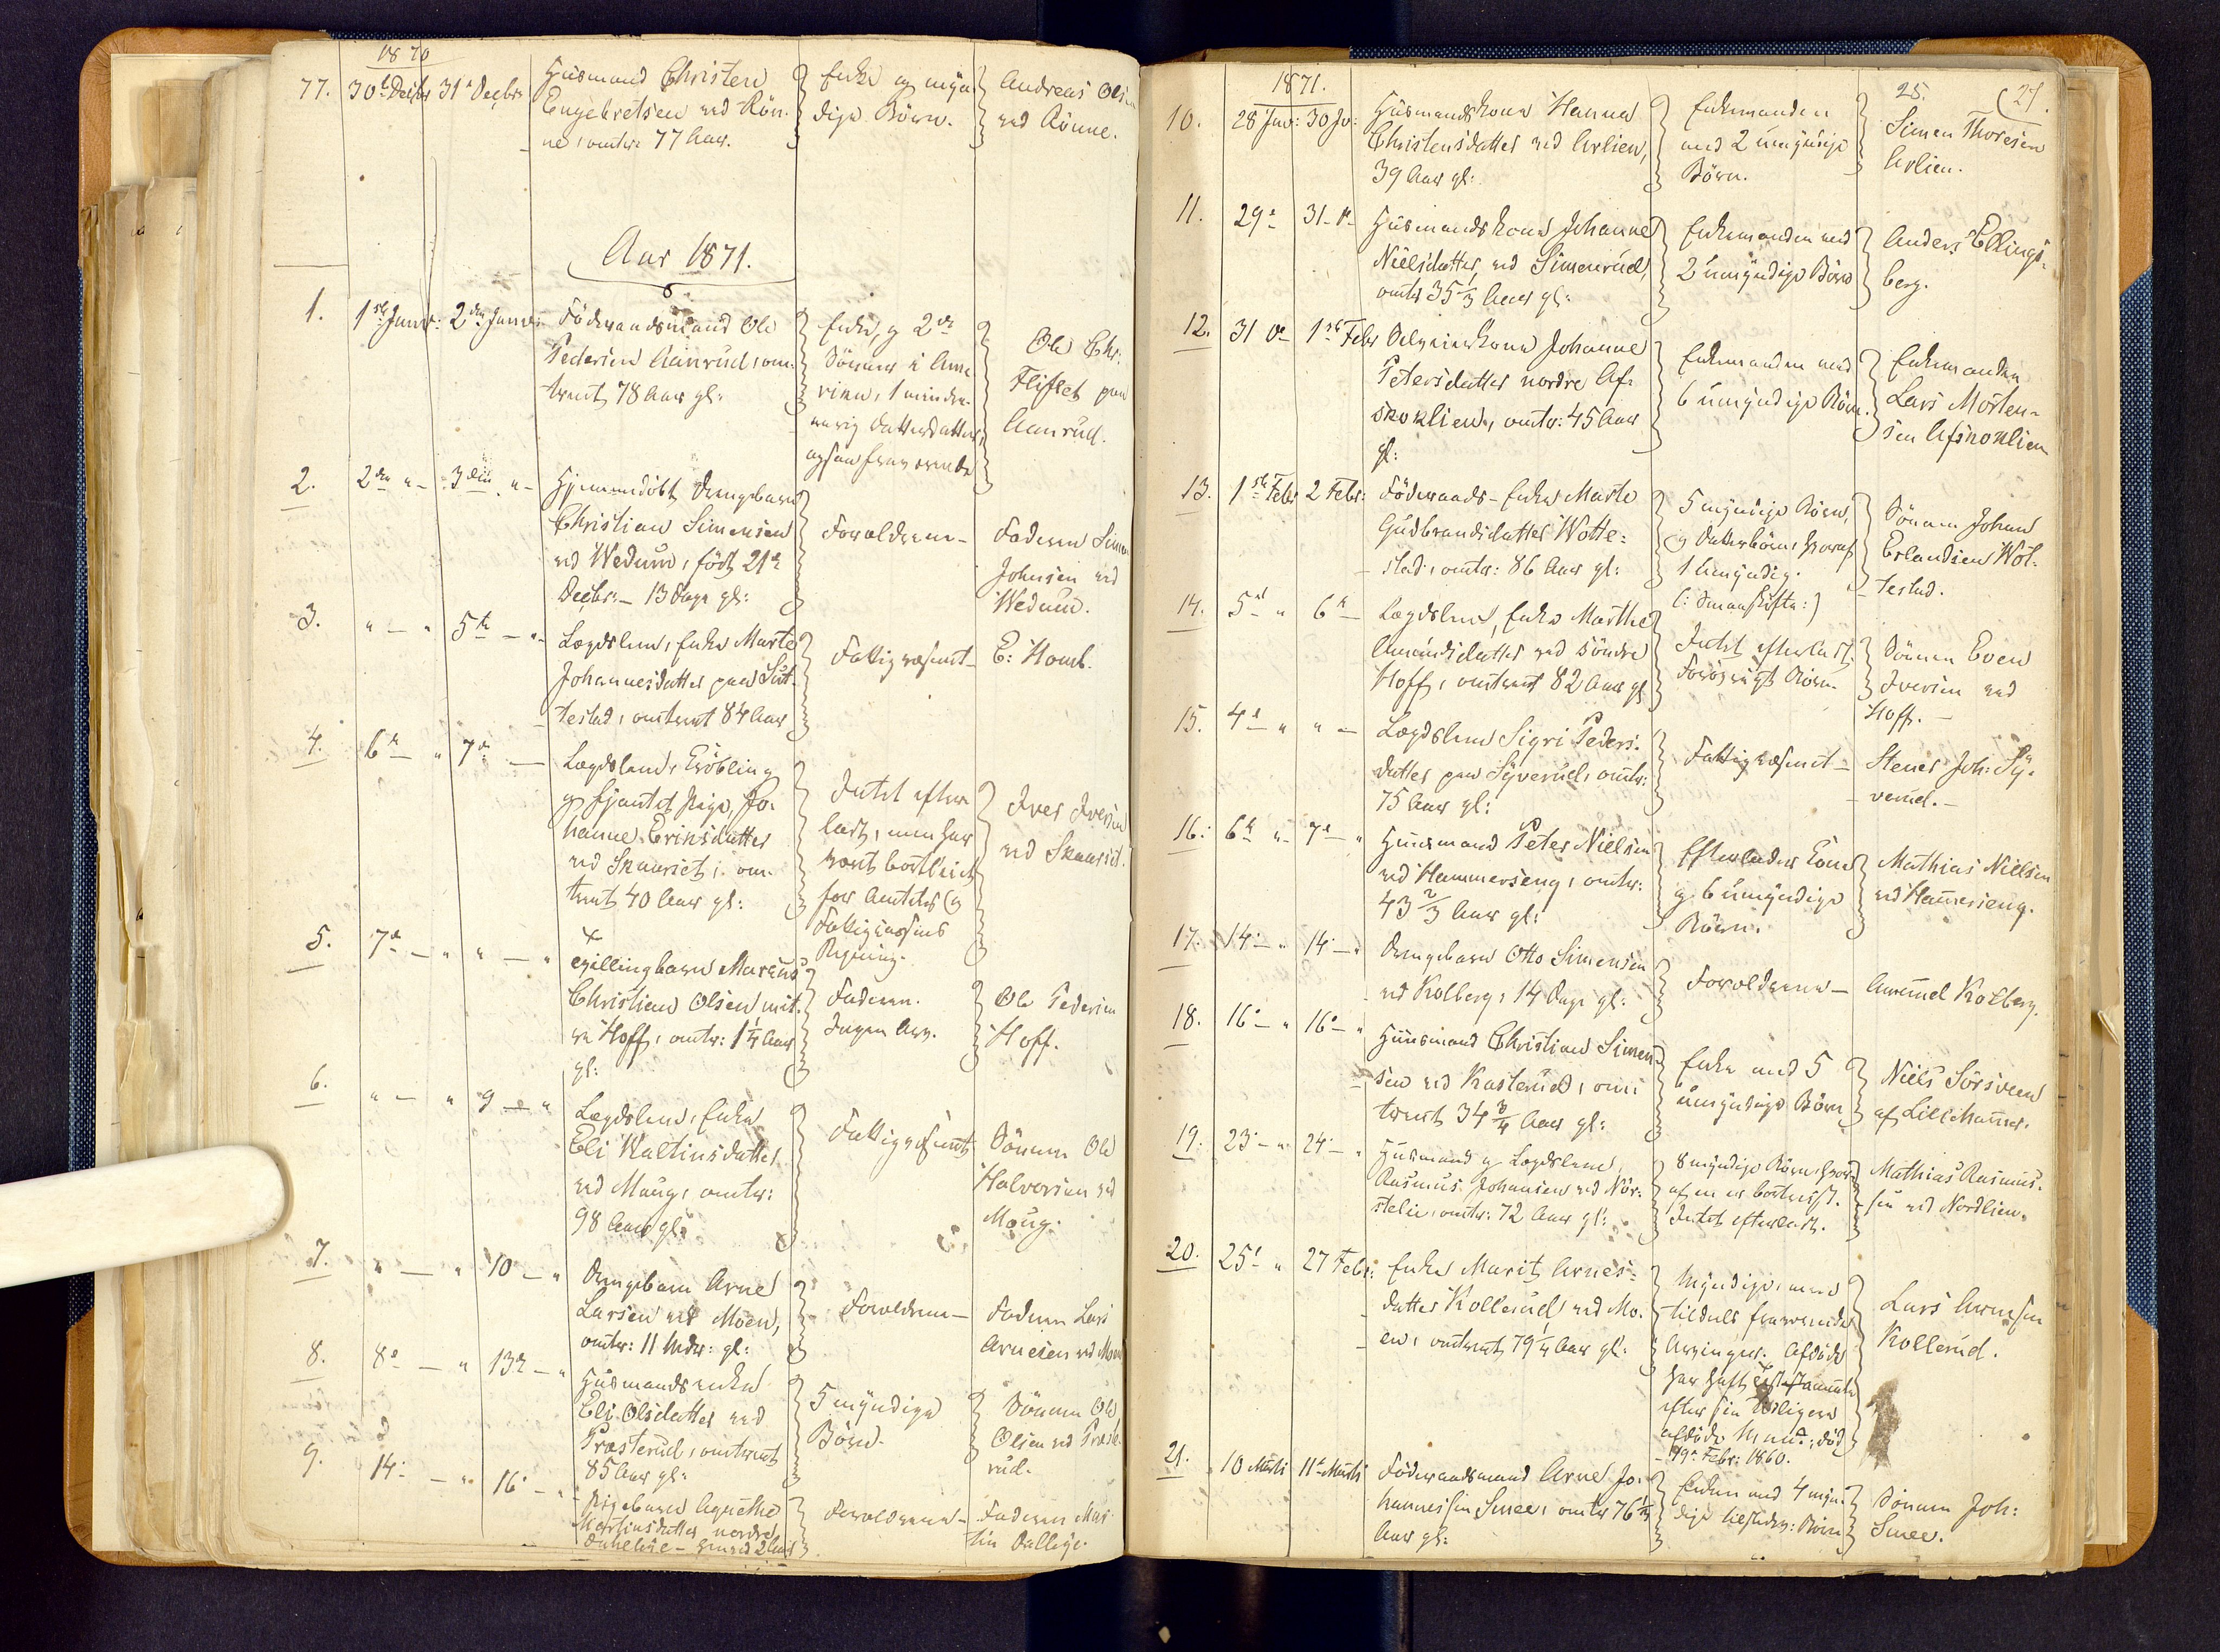 1870
77. 30te Decbr 31e Decbr
Husmand Christen
Engebretsen ved Rön-
ne, omtr: 77 Aar.
Enke og myn-
dige Börn.
Andreas Olsen
ved Rönne.
Aar 1871.
1. 1ste Januar: 2den Januar:
Föderaadsmand Ole
Pedersen Aanrud, om-
trent 78 Aar gl:
Enke, og 2de
Sönner i Ame
rika, 1 mindre-
aarig Datterdatter,
ogsaa fraværende
Ole Chr:
Fliflet paa
Aanrud.
2. 2den " - 3die " -
Hjemmedöbt Drengebarn
Christian Simensen
ved Wedum, födt 21de
Decbr: - 13 Dage gl:
Forældrene -
Faderen Simen
Johnsen ved
Wedum.
3. " - " 5te - " -
Lægdslem, Enke Marte
Johannesdatter paa Sut-
testad, omtrent 84 Aar
Fattigvæsenet -
E: Homb.
4. 6te - " 7de -
Lægdslem, Kröbling
og sjantet Pige, Jo-
hanne Eriksdatter
ved Skauriet, om-
trent 40 Aar gl:
Intet efter
ladt, men har
været bortleiet
for Amtets og
Fattigvæsenets
Regning.
Iver Iversen
ved Skauriet.
5. 7de - " " - "
Tvillingbarn Marcus
Christian Olsen nit-
re Hoff, omtr: 1 1/4 Aar
gl:
Faderen.
Ingen Arv.
Ole Pedersen
Hoff.
6. " - " 9 - "
Lægdslem, Enke
Eli Kaltinsdatter
ved Maug, omtr:
98 Aar gl:
Fattigvæsenet
Sönnen Ole
Halvorsen ved
Moug.
7. " - " 10 - "
Drengebarn Arne
Larsen ved Moen,
omtr: 11 Mdr: gl:
Forældrene -
Faderen Lars
Arnesen ved Moen
8. 8de - " 13de - "
Husmandsenke
Eli Olsdatter ved
Præsterud, omtrent
85 Aar gl:
5 myndige
Börn.
Sönnen Ole
Olsen ved Præste-
rud.
9. 14: - " 16: - "
Pigebarn Agnethe
Martinsdatter nordre
Forældrene -
Faderen Mar-
tin
1871. 25. (27.
10. 28 Janr: 30 Jr:
Husmandskone Hanna
Christensdatter ved Arlien,
39 Aar gl:
Enkemanden
med 2 umyndige
Börn.
Simen Thoresen
Arlien.
11. 29e 31 - de
Husmandskone Johanne
Nielsdatter, ved Simenrud,
omtr 35 1/3 Aar gl:
Enkemanden med
2 umyndige Börn
Anders Ellings-
berg.
12. 31 de - 1ste Febr
Selveierkone Johanne
Petersdatter nordre Af-
skoklien, omtr: 45 Aar
gl:
Enkemanden med
6 umyndige Börn.
Enkemanden
Lars Morten-
sen Afskoklien
13. 1ste Febr 2 Febr:
Föderaads-Enke Marte
Gudbrandsdatter Wotte-
stad, omtr: 86 Aar gl:
5 myndige Börn,
og Datterbörn, hvoraf
1 Umyndig.
(: Smaaskifte:)
Sönnen Johan
Erlandsen Wot-
testad.
14. 5te " 6te -
Lægdslem, Enke Marthe
Amundsdatter ved söndre
Hoff, omtrent 82 Aar gl
Intet efterladt.
Forörigt Börn.
Sönnen Even
Iversen ved
Hoff. -
15. 4de " " -
Lægdslem Sigri Peders-
datter paa Syverud, omtr:
75 Aar gl:
Fattigvæsenet -
Stener Joh: Sy-
verud. -
16. 6te " - 7de - "
Husmand Peter Nielsen
ved Hammerseng, omtr:
43 2/3 Aar gl:
Efterlader Kone
og 6 umyndige
Börn.
Mathias Nielsen
ved Hamerseng.
17. 14: - " 14: - "
Drengebarn Otto Simensen
ved Kolberg, 14 Dage gl:
Forældrene -
Amund Kolberg.
18. 16: - " 16: - "
Husmand Christian Simen-
sen ved Kasterud, om-
trent 34 3/4 Aar gl:
Enke med 5
umyndige Börn
Niels Sörsveen
af Lillehamer.
19. 23: - " 24: - "
Husmand og Lægdslem,
Rasmus Johansen ved Nör-
stelie, omtr: 72 Aar gl:
8 myndige Börn, hvor-
af en er bortreist.
Intet efterladt.
Mathias Rasmus-
sen ved Nordlien.
20. 25: " 27 Febr:
Enke Marit Arnes-
datter Kollerud ved Mo-
en, omtrent 79 1/4 Aar gl:
Myndige, men
tildels fraværende
Arvinger. Afdöde
har havt Testamente
efter sin tidligere
afdöde Mand, död
19de Febr: 1860.
Lars Arnesen
Kollerud.
21. 10 Marts 11te Marts
Föderaadsmand Arne Jo-
hannessen Smee, omtr 76 1/2
Aar gl:
Enken med 4 myn-
dige Börn
Sönnen Joh:
Smee.